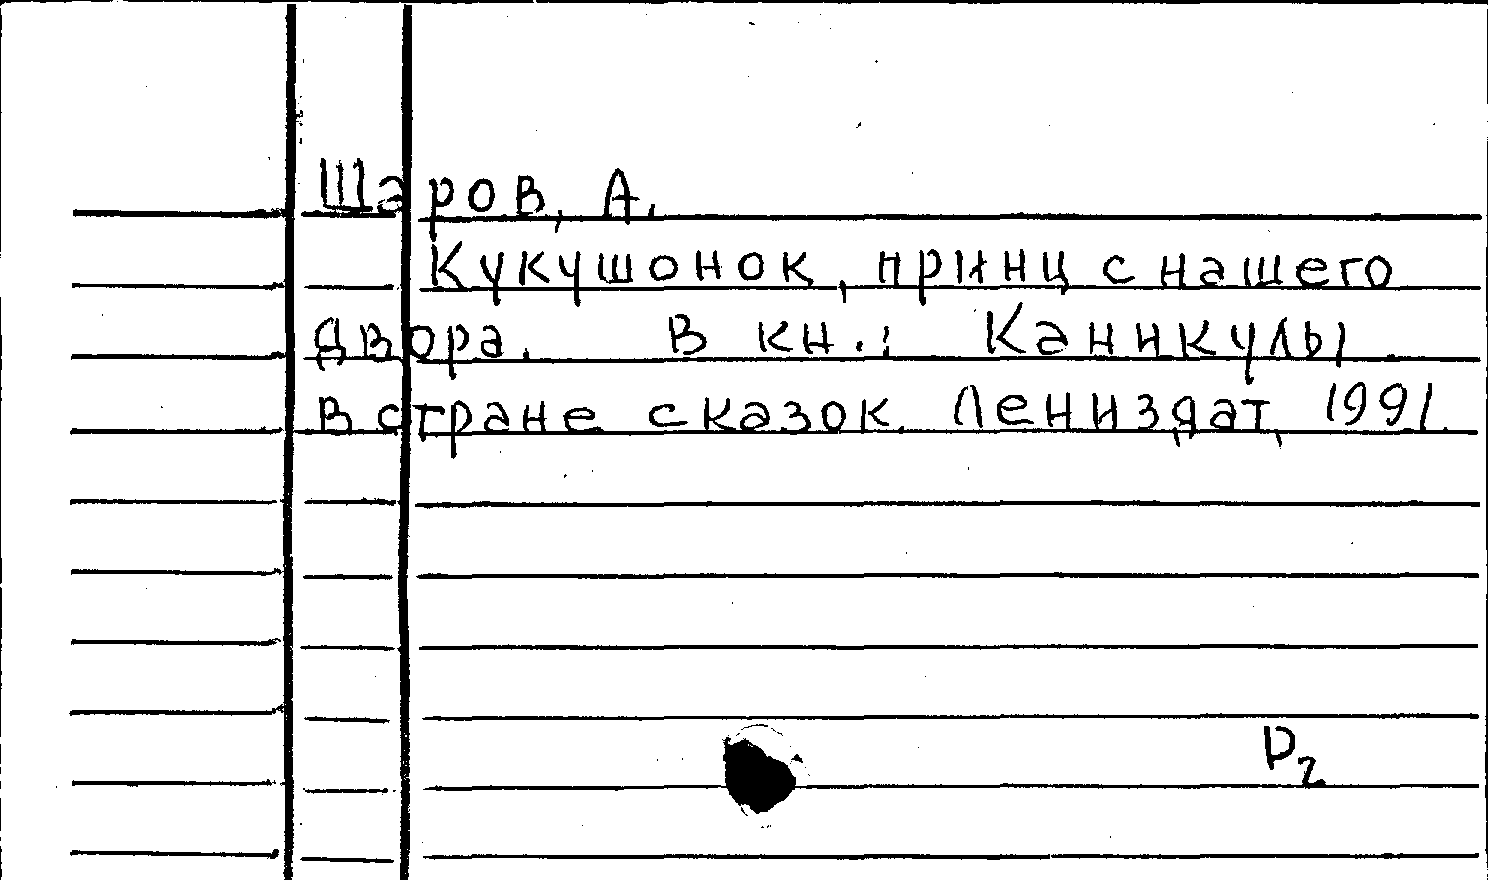 Шаров, А.
Кукушонок, принц с нашего
двора. В кн.: Каникулы
в стране сказок. Лениздат, 1991.
D2